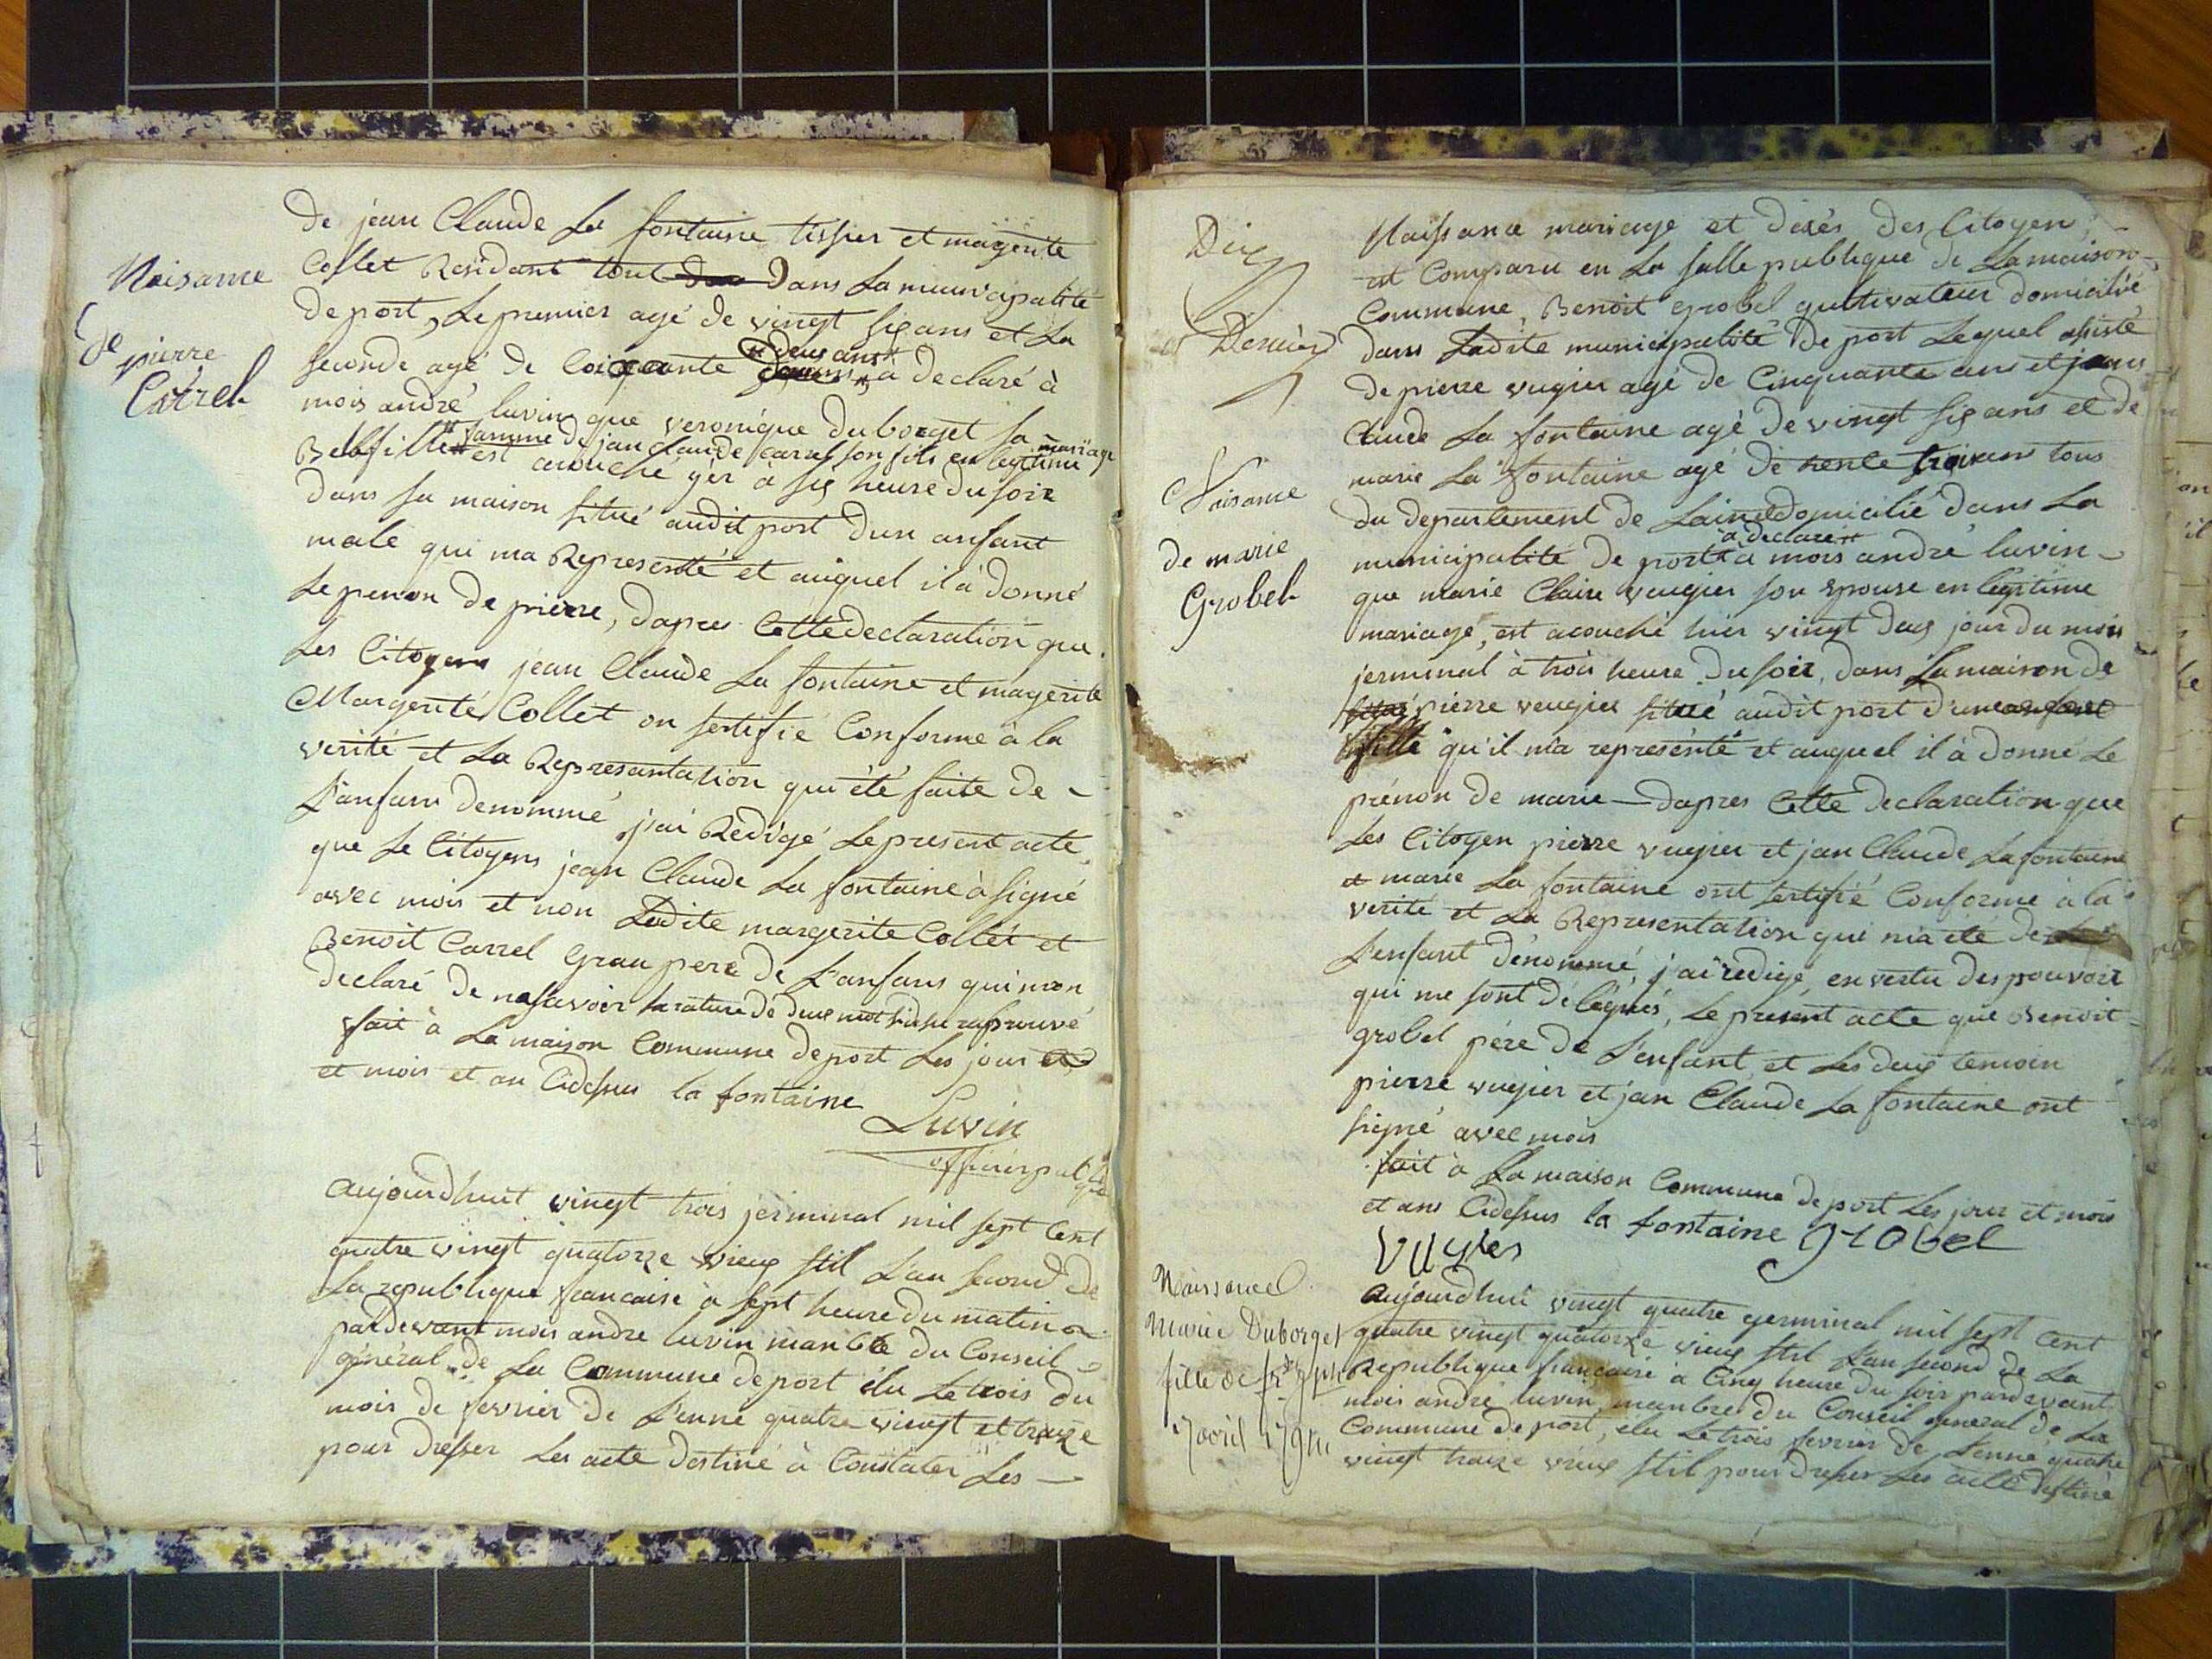 Naisance
de pierre
Carrel
de jean Claude La fontaine tissier et magerite
Collet Residant tout dans La municipalité
de port, Le premier agé de vingt six ans et La
seconde agé de Coiquante deux ans a declaré à
mois andré luvin que veronique duborget sa
Belfille famme de jan claude carrel son fils en legitime mariage
est acouché yer à six heure du soir
dans sa maison situé audit port dun anfant
male qui ma Representé et auquel il à donné
Le penon de pierre, dapres Cette declaration que
Les Citoyens jean Claude La fontaine et magerite
Margerite Collet on sertifié Conforme à la
verité et La Representation qui été faite de
L'anfans denommé j'ai Rédigé Le present acte
que Le Citoyens jean Claude La fontaine à signé
avec mois et non Ladite margerite Collet et
Benoit Carrel Gran pere de L'anfans qui mon
declaré de ne savoir la rature de deux mot
fait à La maison Commune de port Les jour
et mois et an Cidessus la fontaine
Luvin
officier public
aujourdhuit vingt trois jerminal mil sept Cent
quatre vingt quatorze vieux stil L'an second de
La republique francaise à sept heure du matin
pardevant mois andre luvin manbre du Conseil
général de La Commune de port élu Le trois du
mois de fevrier de L'enné quatre vingt et traize
pour dresser Les acte destiné à Constater Les
Dix
Dernier
Naisance
de marie
Grobel
Naissance
Marie Duborget
fille de
17 avril 1794
Naissance mariage et desés des Citoyen
est Comparu en La salle publique de La maison
Commune, Benoit grobel qultivateur domicilié
dans Ladite municipalité de port Lequel assisté
de pierre vugier agé de Cinquante ans et jean
Claude La fontaine agé de vingt six ans et de
marie La fontaine agé de trente trois ans tous
du departement de Lain domicilié dans La
municipalité de port a declaré à mois andré luvin
que marie Claire vengier son Epouse en legitime
mariage, est acouché hier vingt deux jour du mois
jerminal à trois heure du soir, dans La maison de
pierre veugier situé audit port d'une
fille qu'il m'a représénté et auquel il à donné Le
prénon de marie dapres Cette declaration que
Les Citoyen pierre vugier et jan Claude La fontaine
et marie La fontaine ont sertifié Conforme à la
verité et La Representation qui m'a été de
L'enfant dénommé, j'ai redigé, en vertu des pouvoir
qui me sont délégués, Le présent acte que Benoit
grobel pére de L'enfant, et Les deux temoin
pierre vugier et jan Claude La fontaine ont
signé avec mois
fait à La maison Commune de port Les jour et mois
et ans Cidessus la fontaine grobel
Vugier
aujourdhui vingt quatre germinal mil sept Cent
quatre vingt quatorze vieux stil L'an second de La
Republique francaise à Cinq heure du soir pardevant
mois andré luvin, manbre du Conseil général de La
Commune de port, élu Le trois fevrier de L'enné quatre
vingt traize vieux stil pour dresser Les acte destiné